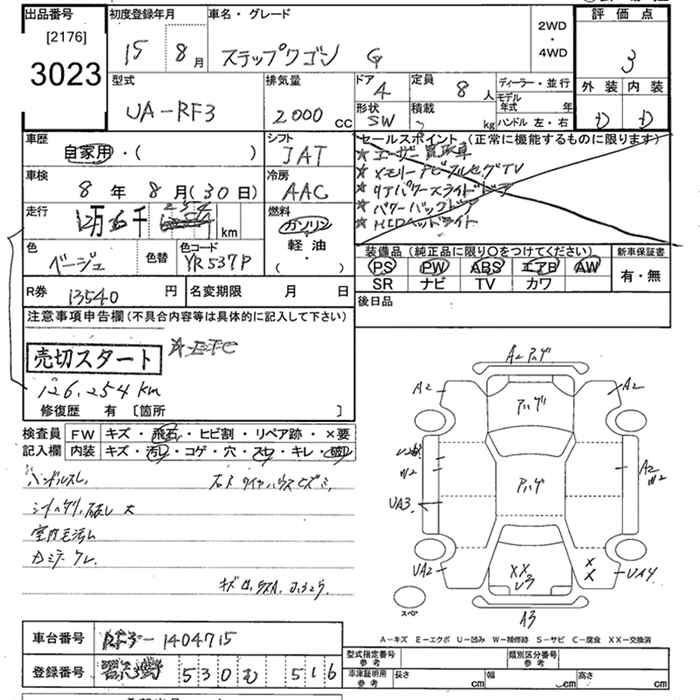 出品番号
[2176]
3023
初度登録年月
15 8月
車名・グレード
ステップワゴン G
2WD
・
4WD
評価点
3
型式
UA-RF3
排気量
2000 cc
ドア
4
形状
SW
定員
8人
積載
kg
ディーラー・並行
モデル年式 年
ハンドル左・右
外装 内装
D D
車歴
自家用・( )
シフト
IAT
車検
8年 8月(30日)
冷房
AAC
走行
12万6千 km
燃料
ガソリン
軽油
・( )
色
ベージュ
色替
色コード
YR537P
R券
13540 円
名変期限 月 日
セールスポイント (正常に機能するものに限ります)
★ エーザー買取車
★ メモリーナビ フルセグTV
★ リアパワースライドドア
★ パワーバックドア
★ HIDヘッドライト
装備品 (純正品に限り○をつけてください)
PS PW ABS エアB AW
SR ナビ TV カワ
新車保証書
有・無
後日品
注意事項申告欄 (不具合内容等は具体的に記入して下さい)
売切スタート
126,254 km
修復歴 有 [箇所 ]
検査員記入欄
FW キズ・飛石・ヒビ割・リペア跡・×要
内装 キズ・汚レ・コゲ・穴・スレ・キレ・破レ
ハンドルスレ
室内モ汚レ
A2 アゲ
A2
A2
アゲ
アゲ
A2
W2
W2
UA3
UA2
UA4
XX
XX
A3
スペア
A-キズ E-エクボ U-凹み W-補修跡 S-サビ C-腐食 XX-交換済
車台番号
RF3-1404715
登録番号
530 む 516
型式指定番号
参考
類別区分番号
参考
車庫証明用
参考
長さ cm
幅 cm
高さ cm